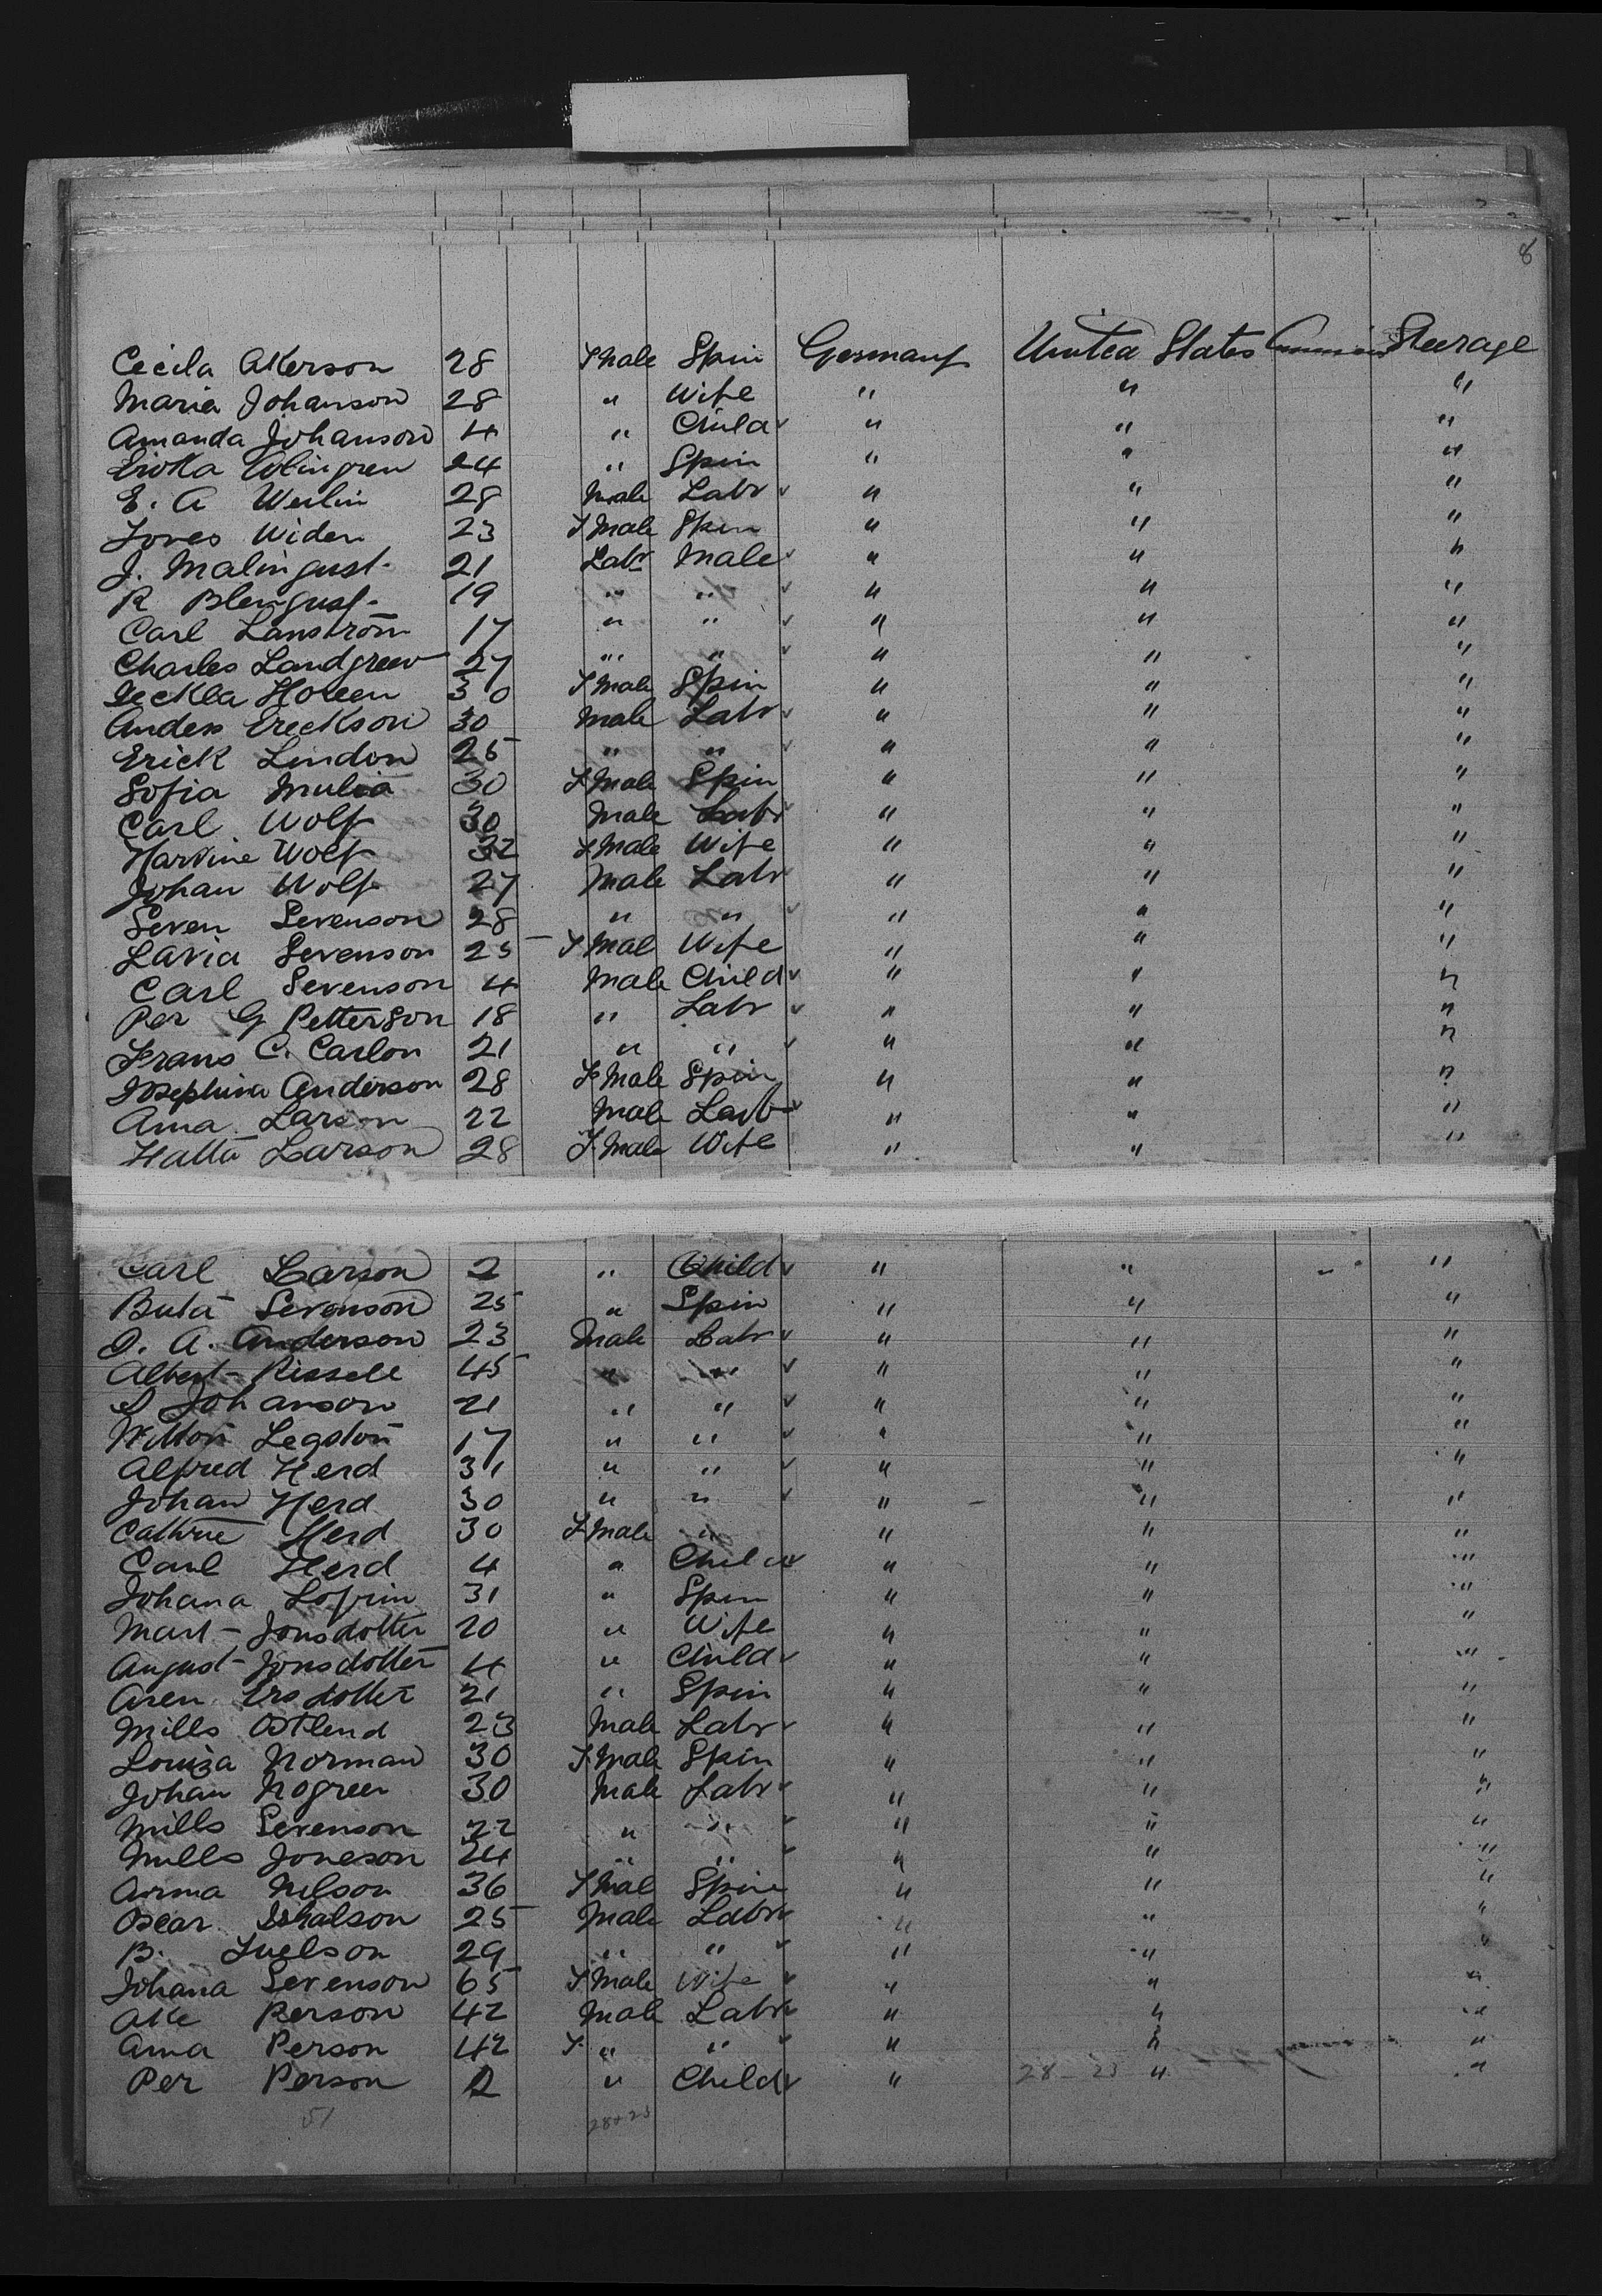 8
Cecila Akerson 28 Fmale Spin Germany United States Steerage
Maria Johanson 28 " Wife " " "
Amanda Johanson 4 " Child " " "
24 " Spin " " "
E. A Weilin 28 Male Labr " " "
Widen 23 F Male Spin " " "
J. Malingust 21 Labr Male " " "
R Blengust 19 " " " " "
Carl Lanström 17 " " " " "
Charles Landgreen 27 " " " " "
30 F Male Spin " " "
Anders Ereckson 30 Male Labr " " "
Erick Lindon 25 " " " " "
Sofia Mulia 30 F Male Spin " " "
Carl Wolf 30 Male Labr " " "
Wolf 32 F Male Wife " " "
Johan Wolf 27 Male Labr " " "
Seven Sevenson 28 " " " " "
Lavia Sevenson 25 F Mal Wife " " "
Carl Sevenson 4 Male Child " " "
Per G Petterson 18 " Labr " " "
Frans C. Carlon 21 " " " " "
Josephina Anderson 28 F Male Spin " " "
Ama Larson 22 Male Labr " " "
Hatta Larson 28 F. Male Wife " " "
Carl Larson 2 " Child " " "
Buta Sevenson 25 " Spin " " "
A. Anderson 23 Male Labr " " "
Albert Rissele 45 " " " " "
Johanson 21 " " " " "
Legston 17 " " " " "
Alfred Herd 31 " " " " "
Johan Herd 30 " " " " "
Cathrie Herd 30 F Male " " " "
Carl Herd 4 " Child " " "
Johana Lofrin 31 " Spin " " "
Mart Jonsdotter 20 " Wife " " "
August Jonsdotter 4 " Child " " "
Aren Ersdotter 21 " Spin " " "
Mills Ostlend 23 Male Labr " " "
Louiza Norman 30 F. Male Spin " " "
Johan Nogreen 30 Male Labr " " "
Mills Sevenson 22 " " " " "
Mills Joneson 24 " " " " "
Anna Nilson 36 F Mal Spin " " "
Oscar 25 Male Labr " " "
B. 29 " " " " "
Johana Sevenson 65 F Male Wife " " "
Ake Person 42 Male Labr " " "
Ama Person 42 F. " " " " "
Per Person 2 " Child " 28-23 " "
51 28+23